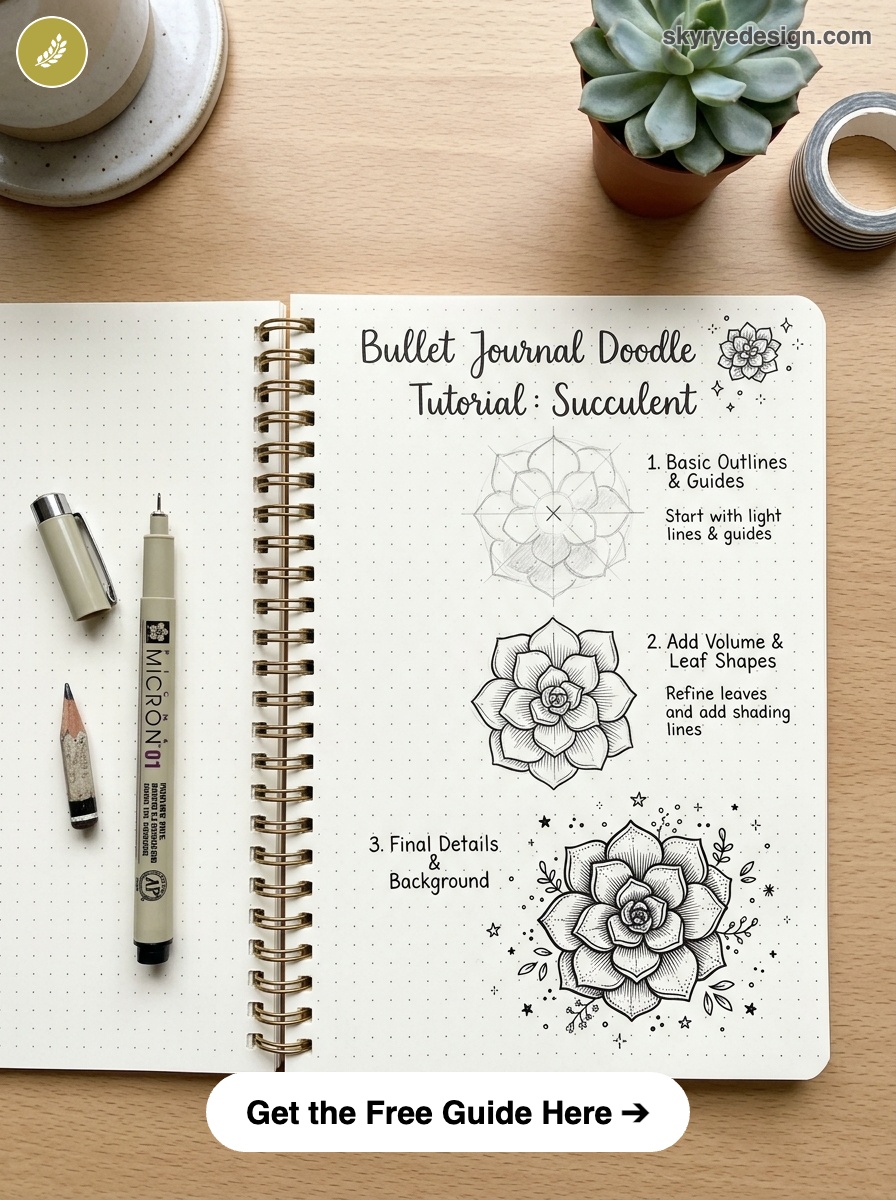 skyryedesign.com
Bullet Journal Doodle
Tutorial: Succulent
1. Basic Outlines
& Guides
Start with light
lines & guides
2. Add Volume &
Leaf Shapes
Refine leaves
and add shading
lines
3. Final Details
&
Background
MICRON 01
AP
Get the Free Guide Here ➔